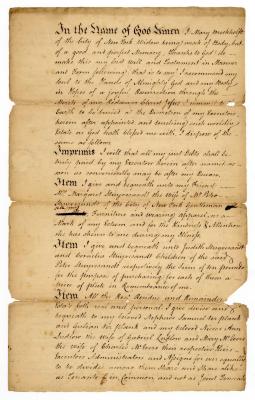 In the Name of God Amen I Mary
of the City of New York Widow being weak of Body, but
of a good and perfect Memory Thanks to God! do
make this my last Will and Testament in Manner
and Form following that is to say I recommend my
Soul to the Hands of Almighty God and my Body
in Hopes of a joyful Resurrection through the
Merits of my Redeemer blessed Jesus I commit to
Earth to be buried at the discretion of my Executors
herein after appointed and touching such worldly
Estate as God hath blessed me with I dispose of the
same as follows
Imprimis I will that all my just Debts shall be
paid by my Executors herein after named as
soon as conveniently may be after my Decease
Item I give and bequeath unto my Friend
Mrs Margaret Stuyvesandt the Wife of Mr Peter
Stuyvesandt of the City of New York Gentleman
Furniture and wearing Apparel as a
Mark of my Esteem and for the Kindness & Attention
she has shewn to me during my Illness
Item I give and bequeath unto Judith Stuyvesandt
and Cornelia Stuyvesandt Children of the said
Peter Stuyvesandt respectively the Sum of ten pounds
for the purpose of purchasing for each of them a
piece of plate in Remembrance of me
Item All the Rest Residue and Remainder
both real and personal I give devise and
bequeath to my beloved Nephews Samuel
and Gulian and my beloved Nieces Ann
Ludlow the Wife of Gabriel Ludlow and Mary McEvers
the Wife of Charles McEvers their respective Heirs
Executors Administrators and Assigns for ever equally
to be divided among them Share and Share alike
as Tenants in Common and not as Joint Tenants